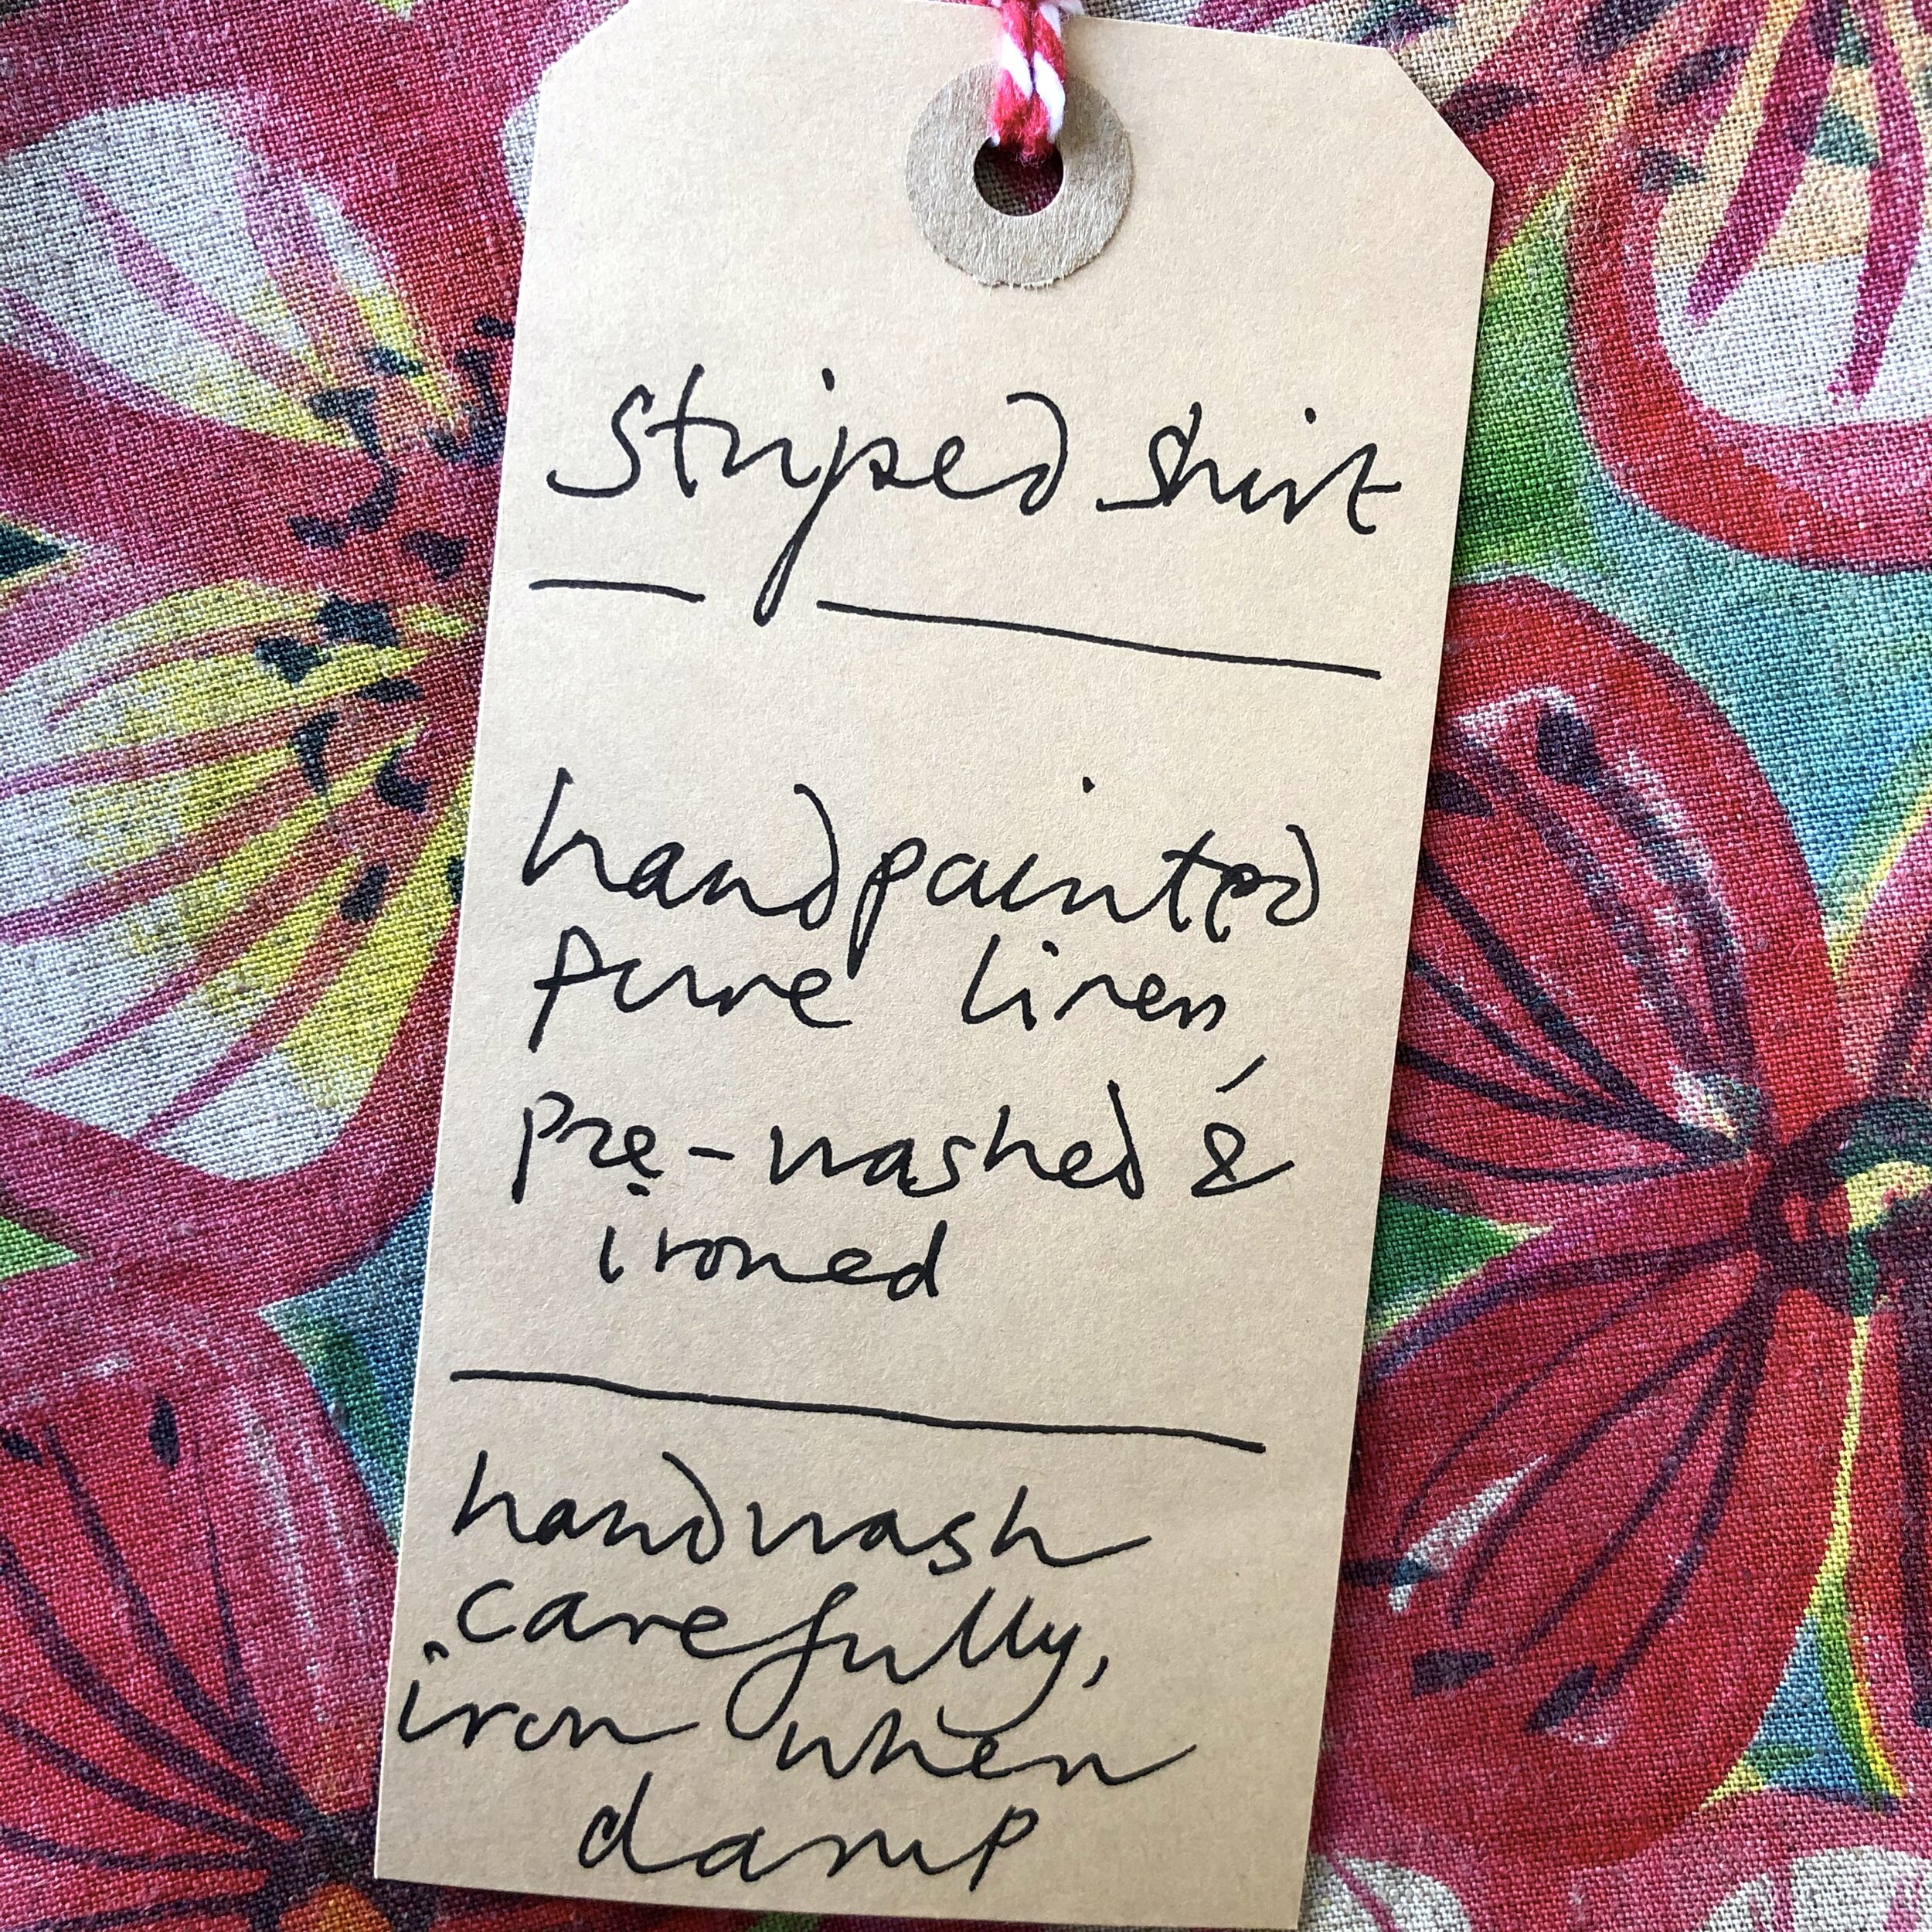 striped shirt
handpainted
pure linen,
pre-washed &
ironed
handwash
carefully,
iron when
damp